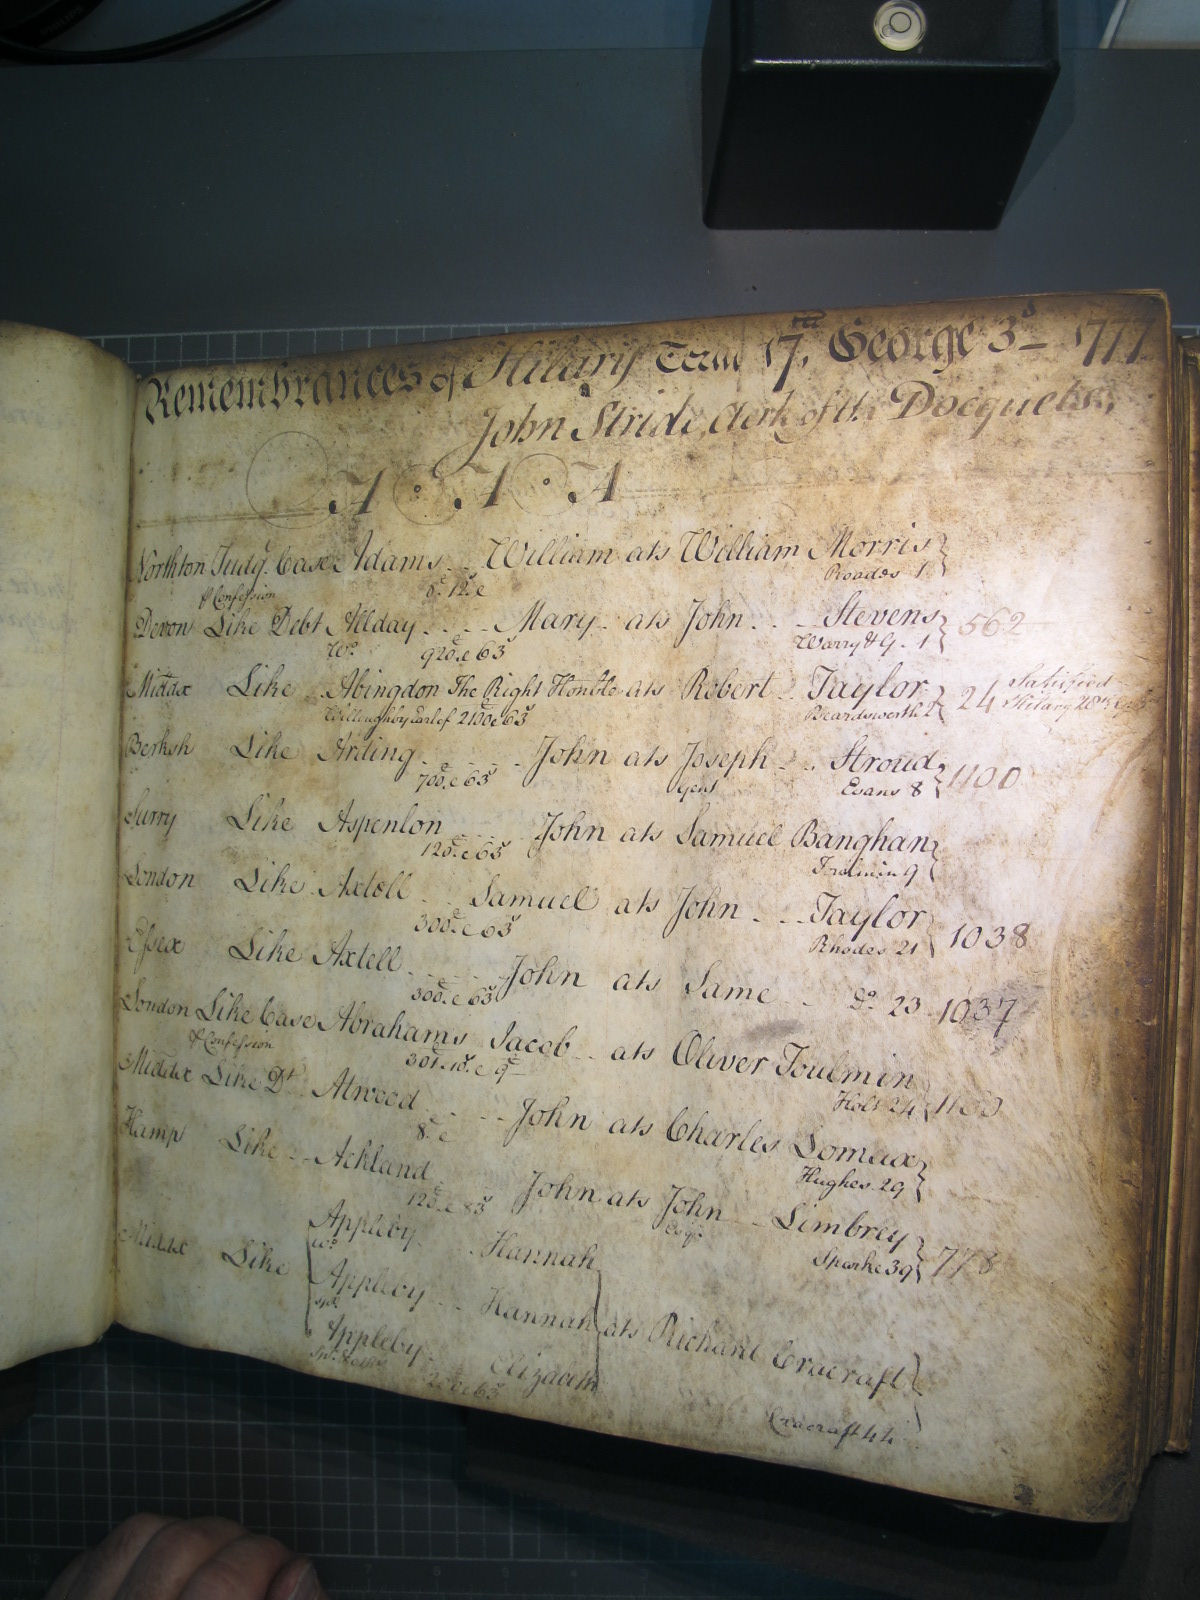 Remembrances of Hilary Term 17th George 3d 1777
John Stride, Clerk of the Docquets,
A A A
Northton Judgt. Case Adams William ats William Morris
p Confession 8. 12. c Roades 1
Devon Like Debt Allday Mary ats John Stevens 562
Wo. 920. c 63s Warry & G. 1
Middx Like Abingdon The Right Honble ats Robert Taylor 24 Satisfied
Willoughby Earl of 2100 c 63s Beardsworth 2 Hilary 28th
Berksh Like Arding John ats Joseph Stroud 1100
700. c 63s gent Evans 8
Surry Like Aspenlon John ats Samuel Banghan
120. c 63s Toulmin 9
London Like Axtell Samuel ats John Taylor 1038
300. c 63s Rhodes 21
Essex Like Axtell John ats Same Do. 23 1037
300. c 63s
London Like Case Abrahams Jacob ats Oliver Toulmin
p Confession 301. 10. c 9d Holt 24
Middx Like Dt. Atwood John ats Charles Lomax
8. c Hughes 29
Hamp Like Ackland John ats John Limbrey 778
120. c 83s Esqr. Sparke 39
Appleby Hannah
wo.
Middx Like Appleby Hannah ats Richard Cracraft
spr.
Appleby Elizabeth
200 c 63s Cracraft 44